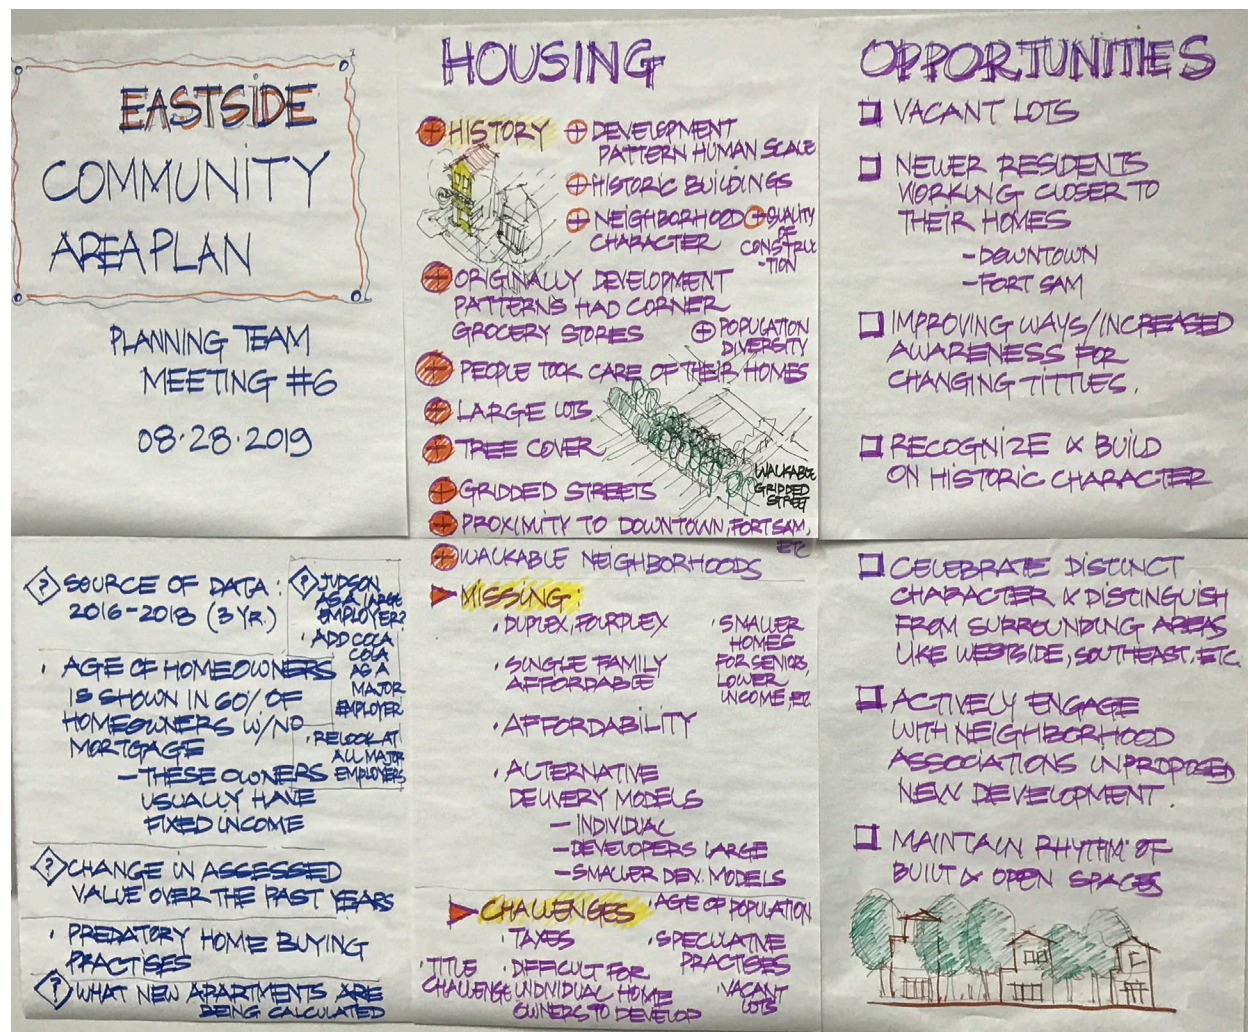 EASTSIDE
COMMUNITY
AREA PLAN
PLANNING TEAM
MEETING #6
08·28·2019
? SOURCE OF DATA:
2016-2018 (3 YR.)
· AGE OF HOMEOWNERS
IS SHOWN IN 60% OF
HOMEOWNERS W/NO
MORTGAGE
— THESE OWNERS
USUALLY HAVE
FIXED INCOME
? JUDSON
AS A LARGE
EMPLOYER?
· ADD COCA
COLA
AS A
MAJOR
EMPLOYER
· RELOOK AT
ALL MAJOR
EMPLOYERS
? CHANGE IN ASSESSED
VALUE OVER THE PAST YEARS
· PREDATORY HOME BUYING
PRACTISES
? WHAT NEW APARTMENTS ARE
BEING CALCULATED
HOUSING
+ HISTORY
+ DEVELOPMENT
PATTERN HUMAN SCALE
+ HISTORIC BUILDINGS
+ NEIGHBORHOOD
CHARACTER
+ QUALITY
OF
CONSTRUC
-TION
+ ORIGINALLY DEVELOPMENT
PATTERNS HAD CORNER
GROCERY STORES
+ POPULATION
DIVERSITY
+ PEOPLE TOOK CARE OF THEIR HOMES
+ LARGE LOTS
+ TREE COVER
WALKABLE
GRIDDED
STREET
+ GRIDDED STREETS
+ PROXIMITY TO DOWNTOWN, FORT SAM,
ETC
+ WALKABLE NEIGHBORHOODS
MISSING:
· DUPLEX, FOURPLEX
· SINGLE FAMILY
AFFORDABLE
· AFFORDABILITY
· ALTERNATIVE
DELIVERY MODELS
— INDIVIDUAL
— DEVELOPERS LARGE
— SMALLER DEV. MODELS
· SMALLER
HOMES
FOR SENIORS,
LOWER
INCOME, ETC.
CHALLENGES
· TAXES
· TITLE
CHALLENGE
· DIFFICULT FOR
INDIVIDUAL HOME
OWNERS TO DEVELOP
· AGE OF POPULATION
· SPECULATIVE
PRACTISES
· VACANT
LOTS
OPPORTUNITIES
VACANT LOTS
NEWER RESIDENTS
WORKING CLOSER TO
THEIR HOMES
- DOWNTOWN
- FORT SAM
IMPROVING WAYS/INCREASED
AWARENESS FOR
CHANGING TITTLES.
RECOGNIZE & BUILD
ON HISTORIC CHARACTER
CELEBRATE DISTINCT
CHARACTER & DISTINGUISH
FROM SURROUNDING AREAS
LIKE WESTSIDE, SOUTHEAST, ETC.
ACTIVELY ENGAGE
WITH NEIGHBORHOOD
ASSOCIATIONS IN PROPOSED
NEW DEVELOPMENT.
MAINTAIN RHYTHM OF
BUILT & OPEN SPACES